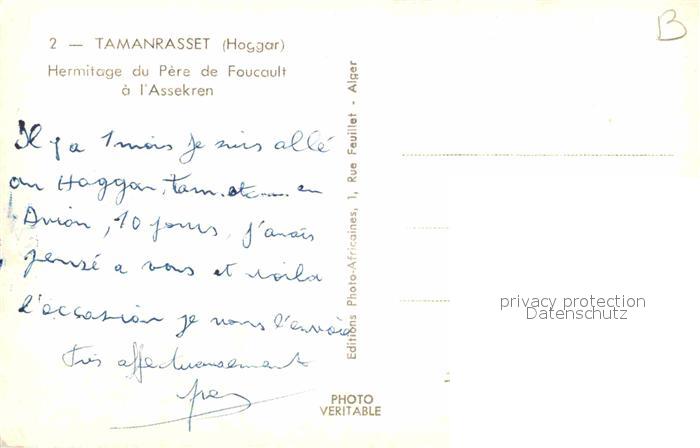 2 — TAMANRASSET (Hoggar)
Hermitage du Père de Foucault
à l'Assekren
Il y a 1 mois je suis allé
au Haggar, tam. etc..... en
Avion, 10 jours, j'avais
pensé a vous et voila
l'occasion je vous l'envoie
très affectueusement
Editions Photo-Africaines, 1, Rue Feuillet - Alger
PHOTO
VERITABLE
B
privacy protection
Datenschutz